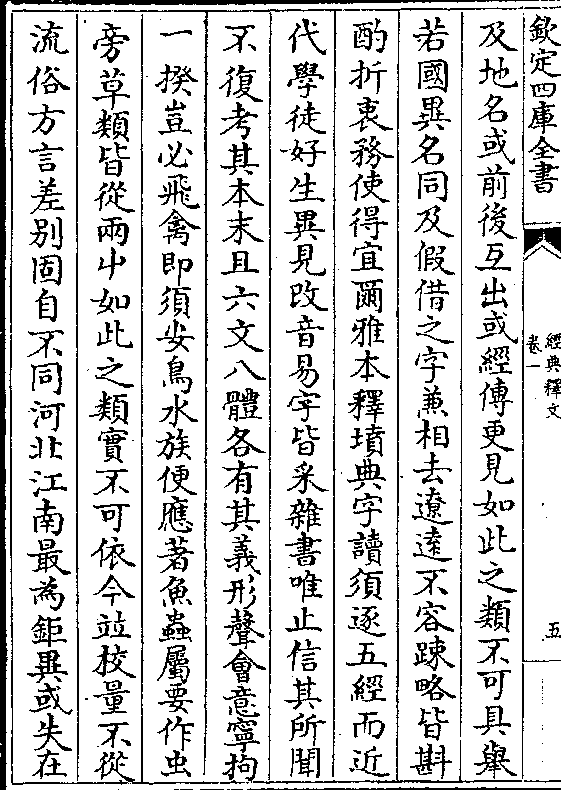 欽定四庫全書
經典釋文
卷一
五
及地名或前後互出或經傳更見如此之類不可具舉
若國異名同及假借之字兼相去遼逺不容踈略皆斟
酌折衷務使得宜爾雅本釋墳典字讀須逐五經而近
代學徒好生異見改音易字皆采雜書唯止信其所聞
不復考其本末且六文八體各有其義形聲會意寧拘
一揆豈必飛禽即須安鳥水族便應著魚蟲屬要作虫
旁草類皆從兩屮如此之類實不可依今竝校量不從
流俗方言差别固自不同河北江南最為鉅異或失在